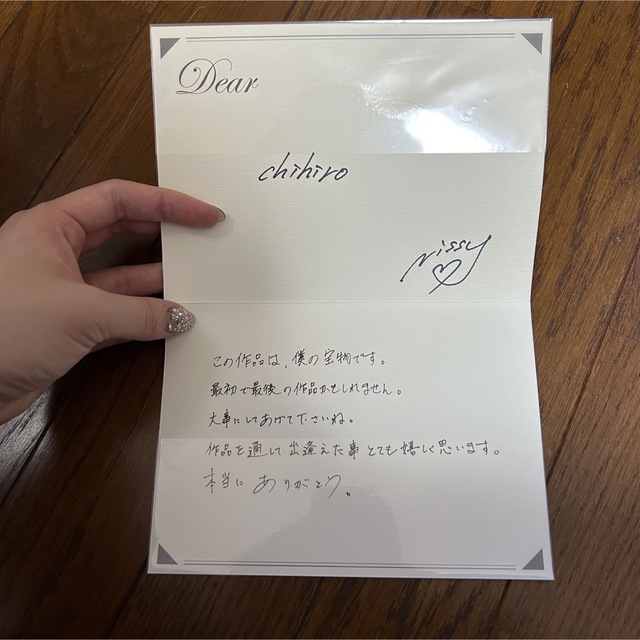 Dear
chihiro
Nissy
この作品は、僕の宝物です。
最初で最後の作品かもしれません。
大事にしてあげて下さいね。
作品を通して出逢えた事とても嬉しく思います。
本当に ありがとう。